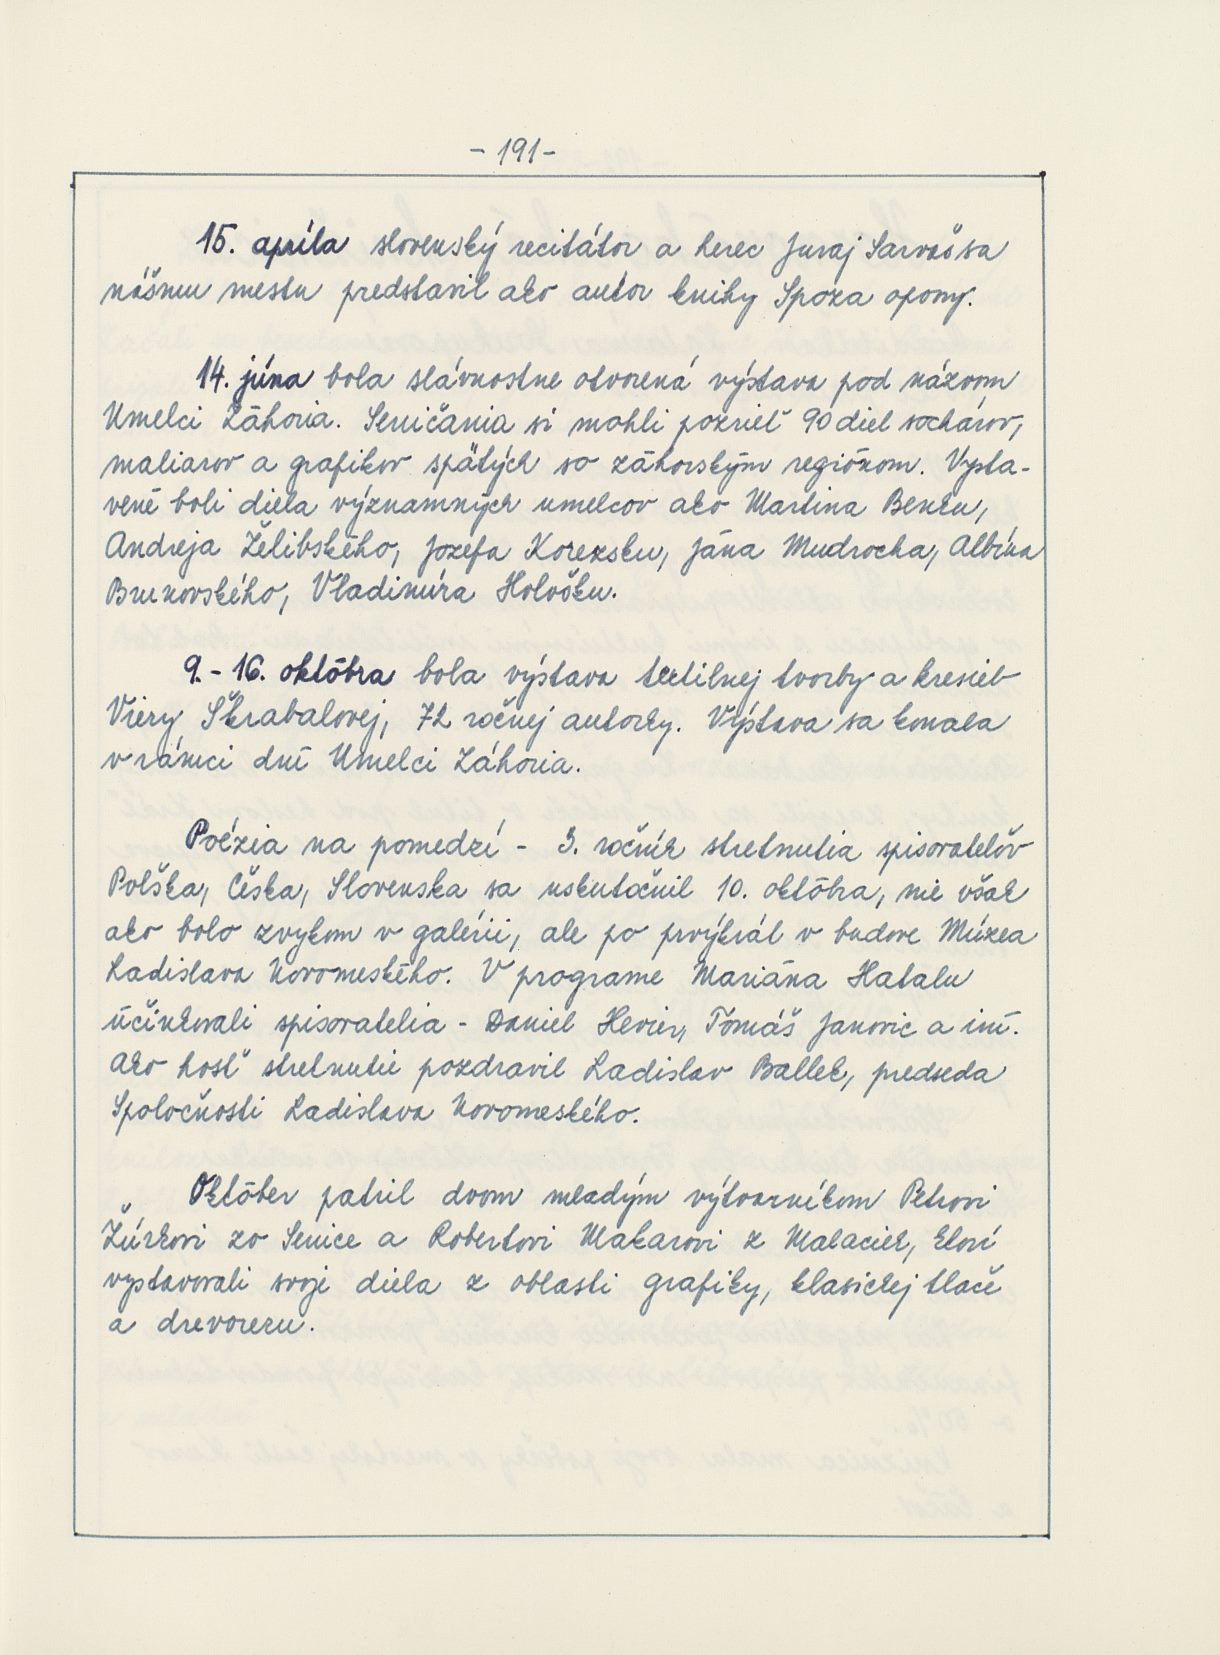 - 191 -
15. apríla slovenský recitátor a herec Juraj Sarvaš sa
nášmu mestu predstavil ako autor knihy Spoza opony.
14. júna bola slávnostne otvorená výstava pod názvom
Umelci Záhoria. Seničania si mohli pozrieť 90 diel sochárov,
maliarov a grafikov spätých so záhorským regiónom. Vysta-
vené boli diela významných umelcov ako Martina Benku,
Andreja Želibského, Jozefa Korezsku, Jána Mudrocha, Albína
Brunovského, Vladimíra Hološku.
9. - 16. októbra bola výstava textilnej tvorby a kresieb
Viery Škrabalovej, 72 ročnej autorky. Výstava sa konala
v rámci dní Umelci Záhoria.
Poézia na pomedzí - 3. ročník stretnutia spisovateľov
Poľska, Česka, Slovenska sa uskutočnil 10. októbra, nie však
ako bolo zvykom v galérii, ale po prvýkrát v budove Múzea
Ladislava Novomeského. V programe Mariána Hatalu
účinkovali spisovatelia - Daniel Hevier, Tomáš Janovic a iní.
Ako hosť stretnutie pozdravil Ladislav Ballek, predseda
Spoločnosti Ladislava Novomeského.
Október patril dvom mladým výtvarníkom Petrovi
Žúrkovi zo Senice a Robertovi Makarovi z Malaciek, ktorí
vystavovali svoje diela z oblasti grafiky, klasickej tlače
a drevorezu.